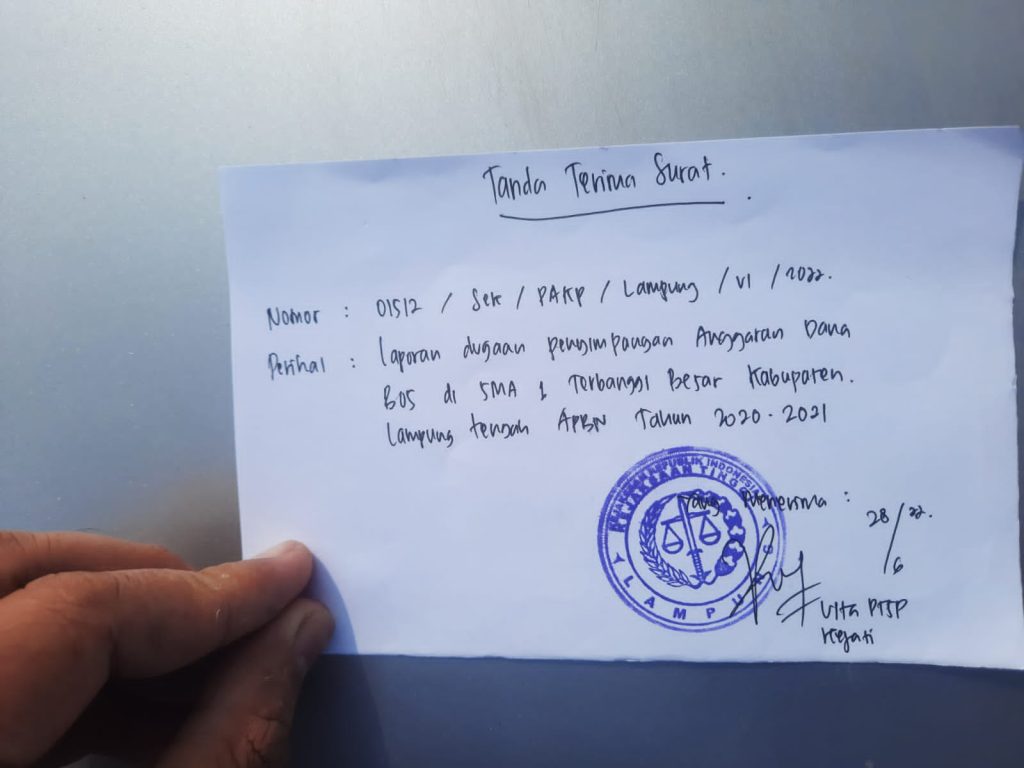 Tanda Terima Surat.
Nomor : 01512 / Sek / PAKP / Lampung / VI / 2022.
Perihal : laporan dugaan penyimpangan Anggaran Dana
BOS di SMA 1 Terbanggi Besar Kabupaten.
Lampung tengah APBN Tahun 2020-2021
KEJAKSAAN REPUBLIK INDONESIA
KEJAKSAAN TINGGI
LAMPUNG
yang Menerima :
28/6 22.
Vita PTSP
Kejati